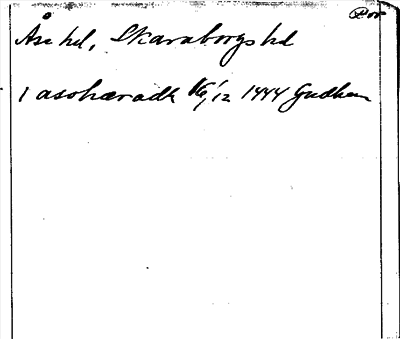 Por
Åse hd, Skaraborgs hd
i asohæradh 16/12 1444 Gudhem